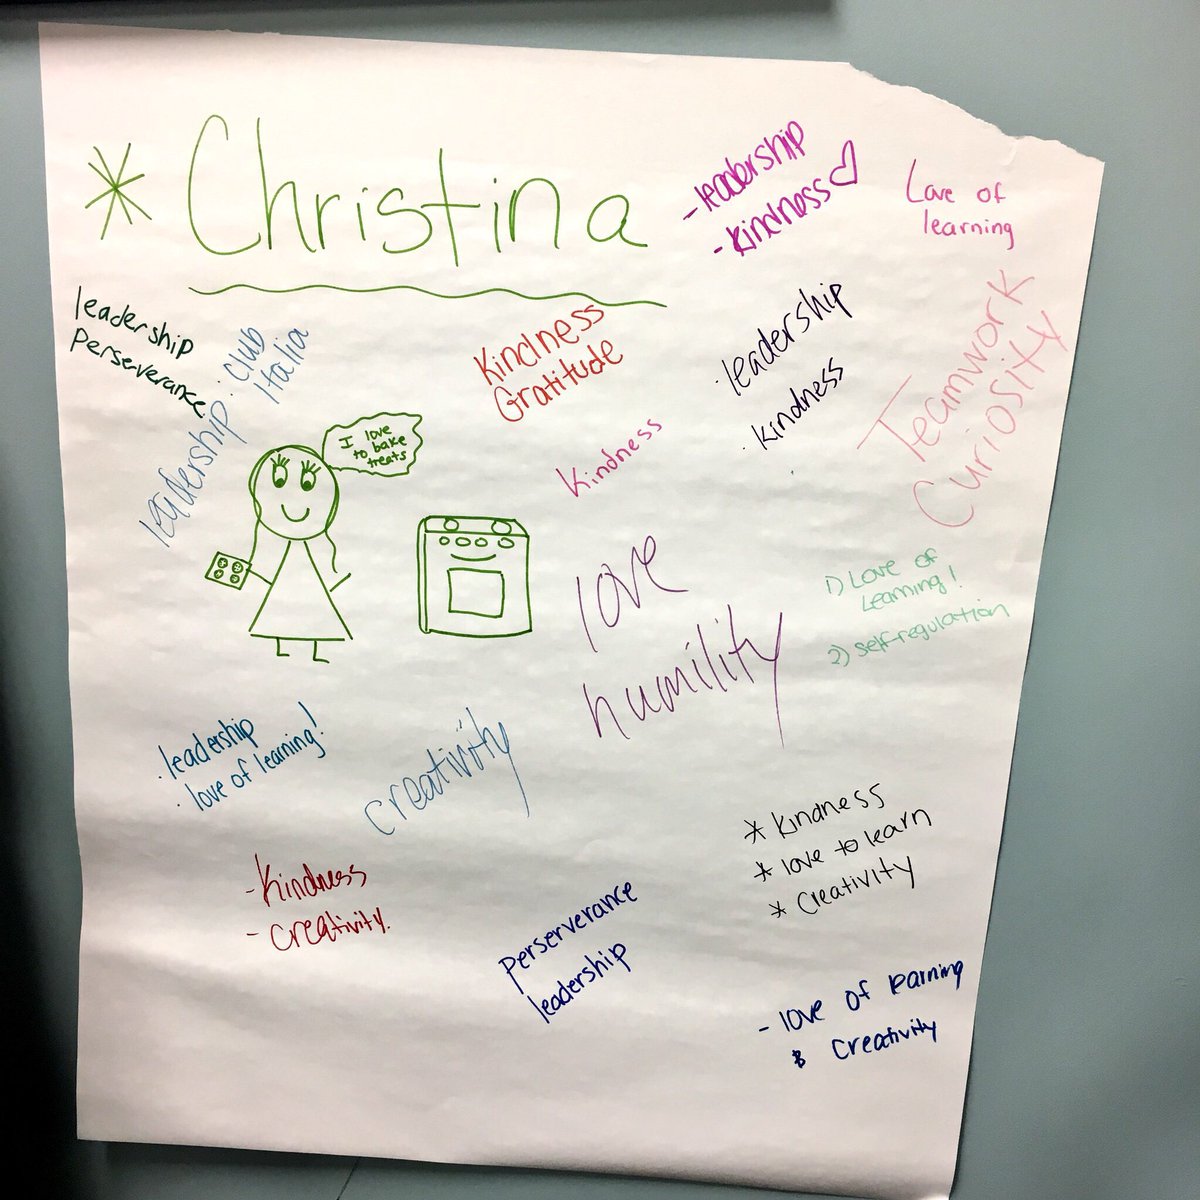 * Christina
- leadership
- kindness
Love of
learning
leadership
perserverance
leadership
· club
Italia
Kindness
Gratitude
· leadership
· kindness
Teamwork
Curiosity
I love
to bake
treats
Kindness
love
humility
1) Love of
Learning!
2) self-regulation
· leadership
· love of learning!
creativity
* kindness
* love to learn
* Creativity
- Kindness
- creativity.
perserverance
leadership
- love of learning
& Creativity